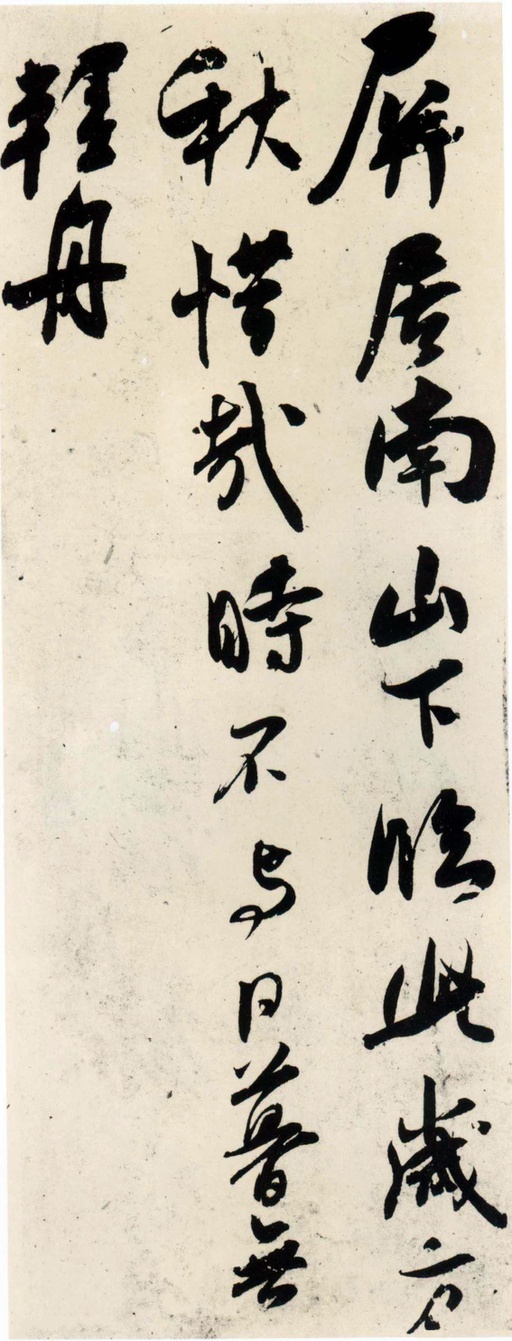 屏居南山下臨此歲方
秋惜哉時不與日暮無
輕舟